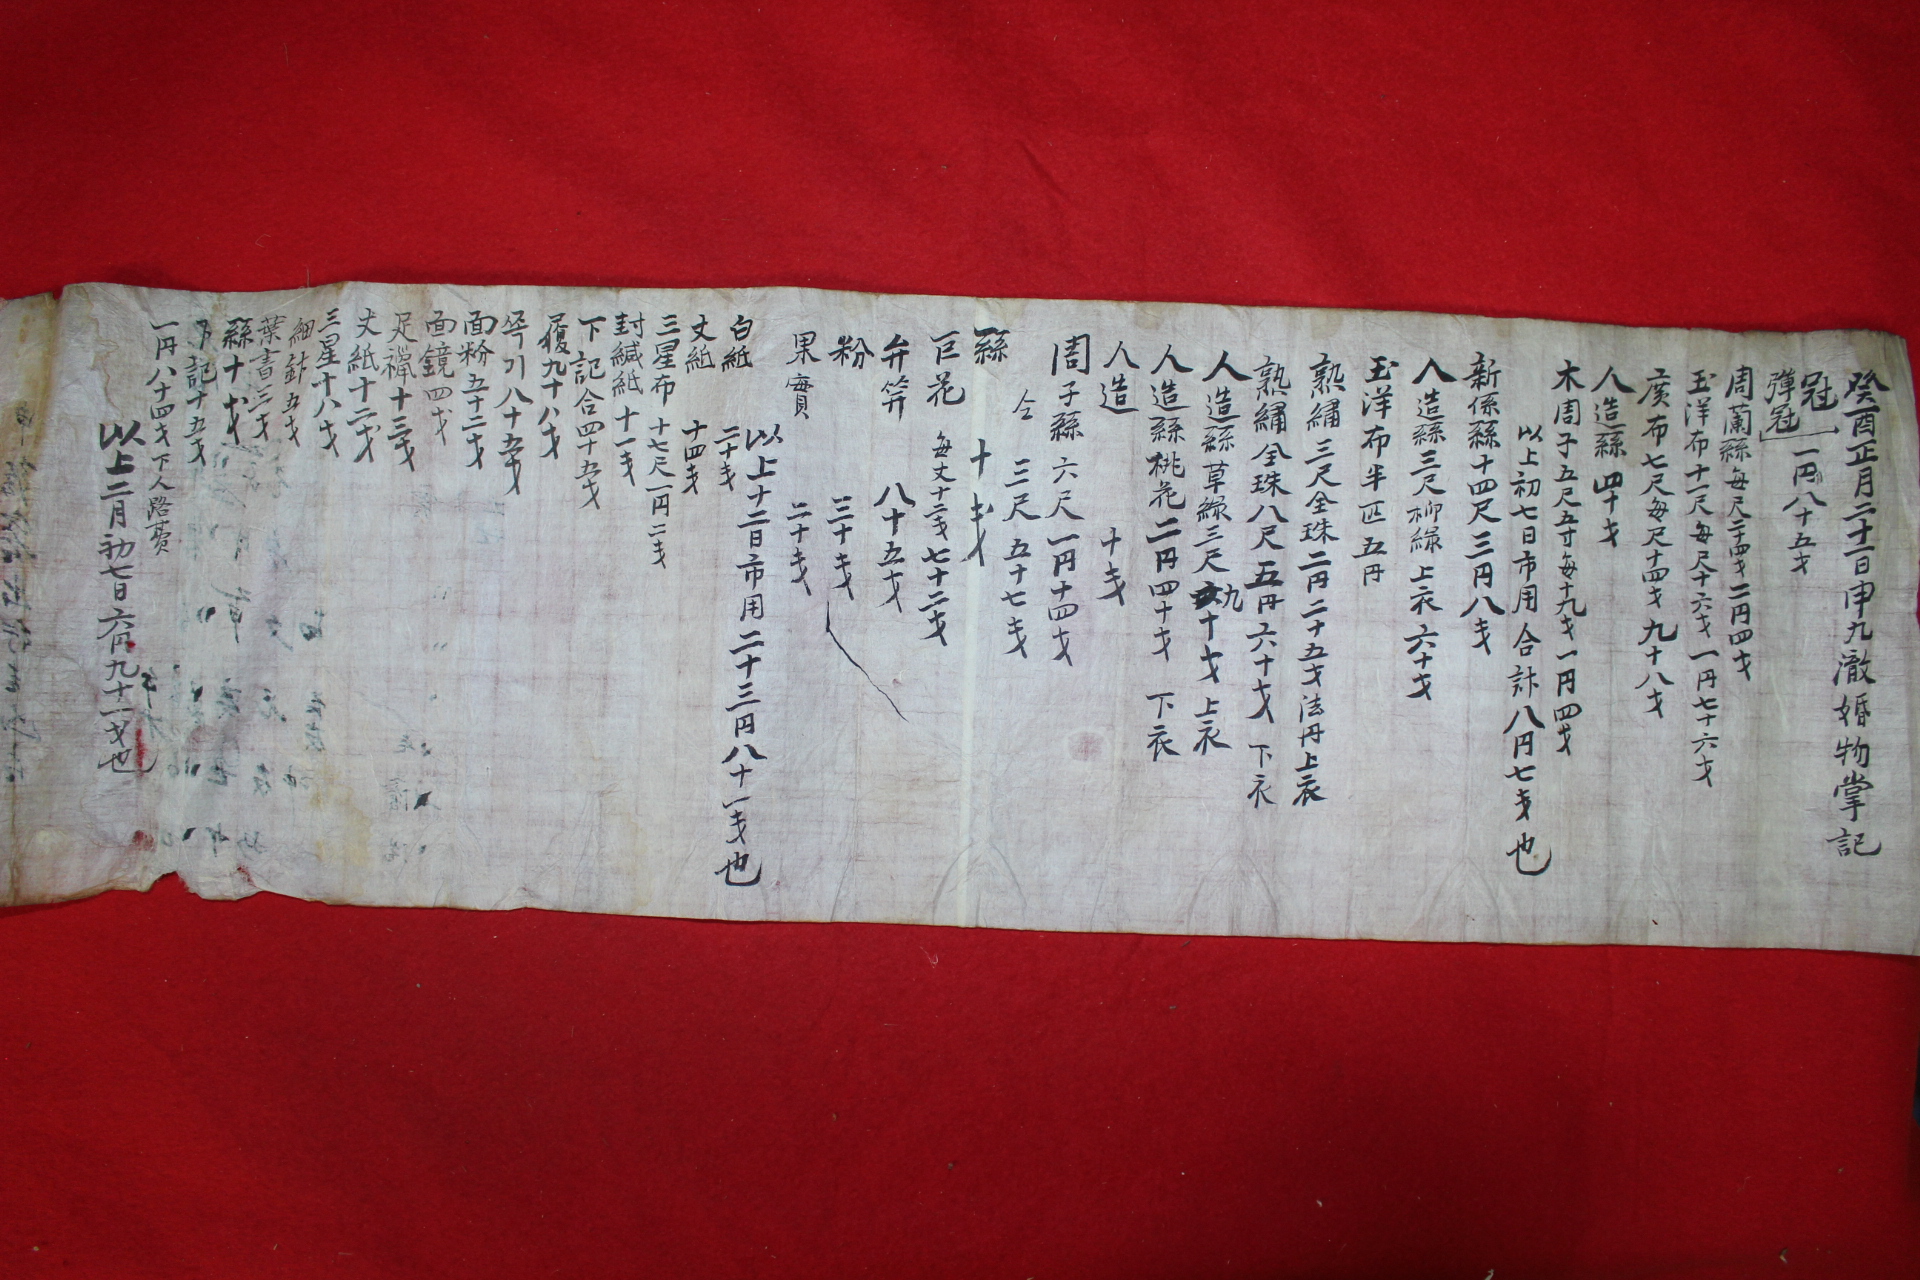 癸酉正月二十一日申九澈婚物掌記
冠
彈冠 一円八十五才
周蘭絲每尺二十四才二円四才
玉洋布十一尺每尺十六才一円七十六才
広布七尺每尺十四才九十八才
人造絲四十才
木周子五尺五寸每十九才一円四才
以上初七日市用合計八円七才也
新係絲十四尺三円八才
人造絲三尺柳綠上衣六十才
玉洋布半匹五円
熟繡三尺全珠二円二十五才法丹上衣
熟繡全珠八尺五円六十才下衣
人造絲草綠三尺九十才上衣
人造絲桃花二円四十才下衣
人造 十才
周子絲六尺一円十四才
仝三尺五十七才
絲 十才
巨花每丈十二才七十二才
弁笄 八十五才
粉 三十才
果實 二十才
以上十二日市用二十三円八十一才也
白紙 二十才
丈紙 十四才
三星布十七尺一円二才
封緘紙十一才
下記合四十五才
履九十八才
쪽기八十五才
面粉五十二才
面鏡四才
足襌十三才
丈紙十二才
三星十八才
細針五才
葉書三才
絲十才
下記十五才
一円八十四才下人路費
以上二月初七日六円九十一才也